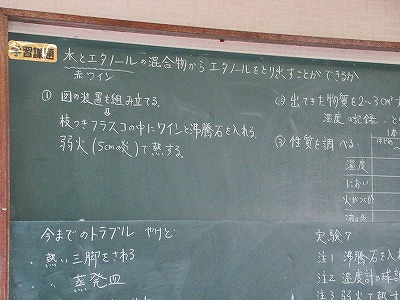 学習課題
水とエタノールの混合物からエタノールをとり出すことができるか
赤ワイン
① 図の装置を組み立てる
⇓
枝つきフラスコの中にワインと沸騰石を入れる
弱火(5cmの炎)で熱する。
② 出てきた物質を2~3cm³
温度の記録
③ 性質を調べる
1本
温度
におい
火がつくか
今までのトラブル やけど
・熱い三脚をさわる
・ 〃 蒸発皿
実験7
注1 沸騰石を入
注2 温度計の球部
注3 弱火で熱す